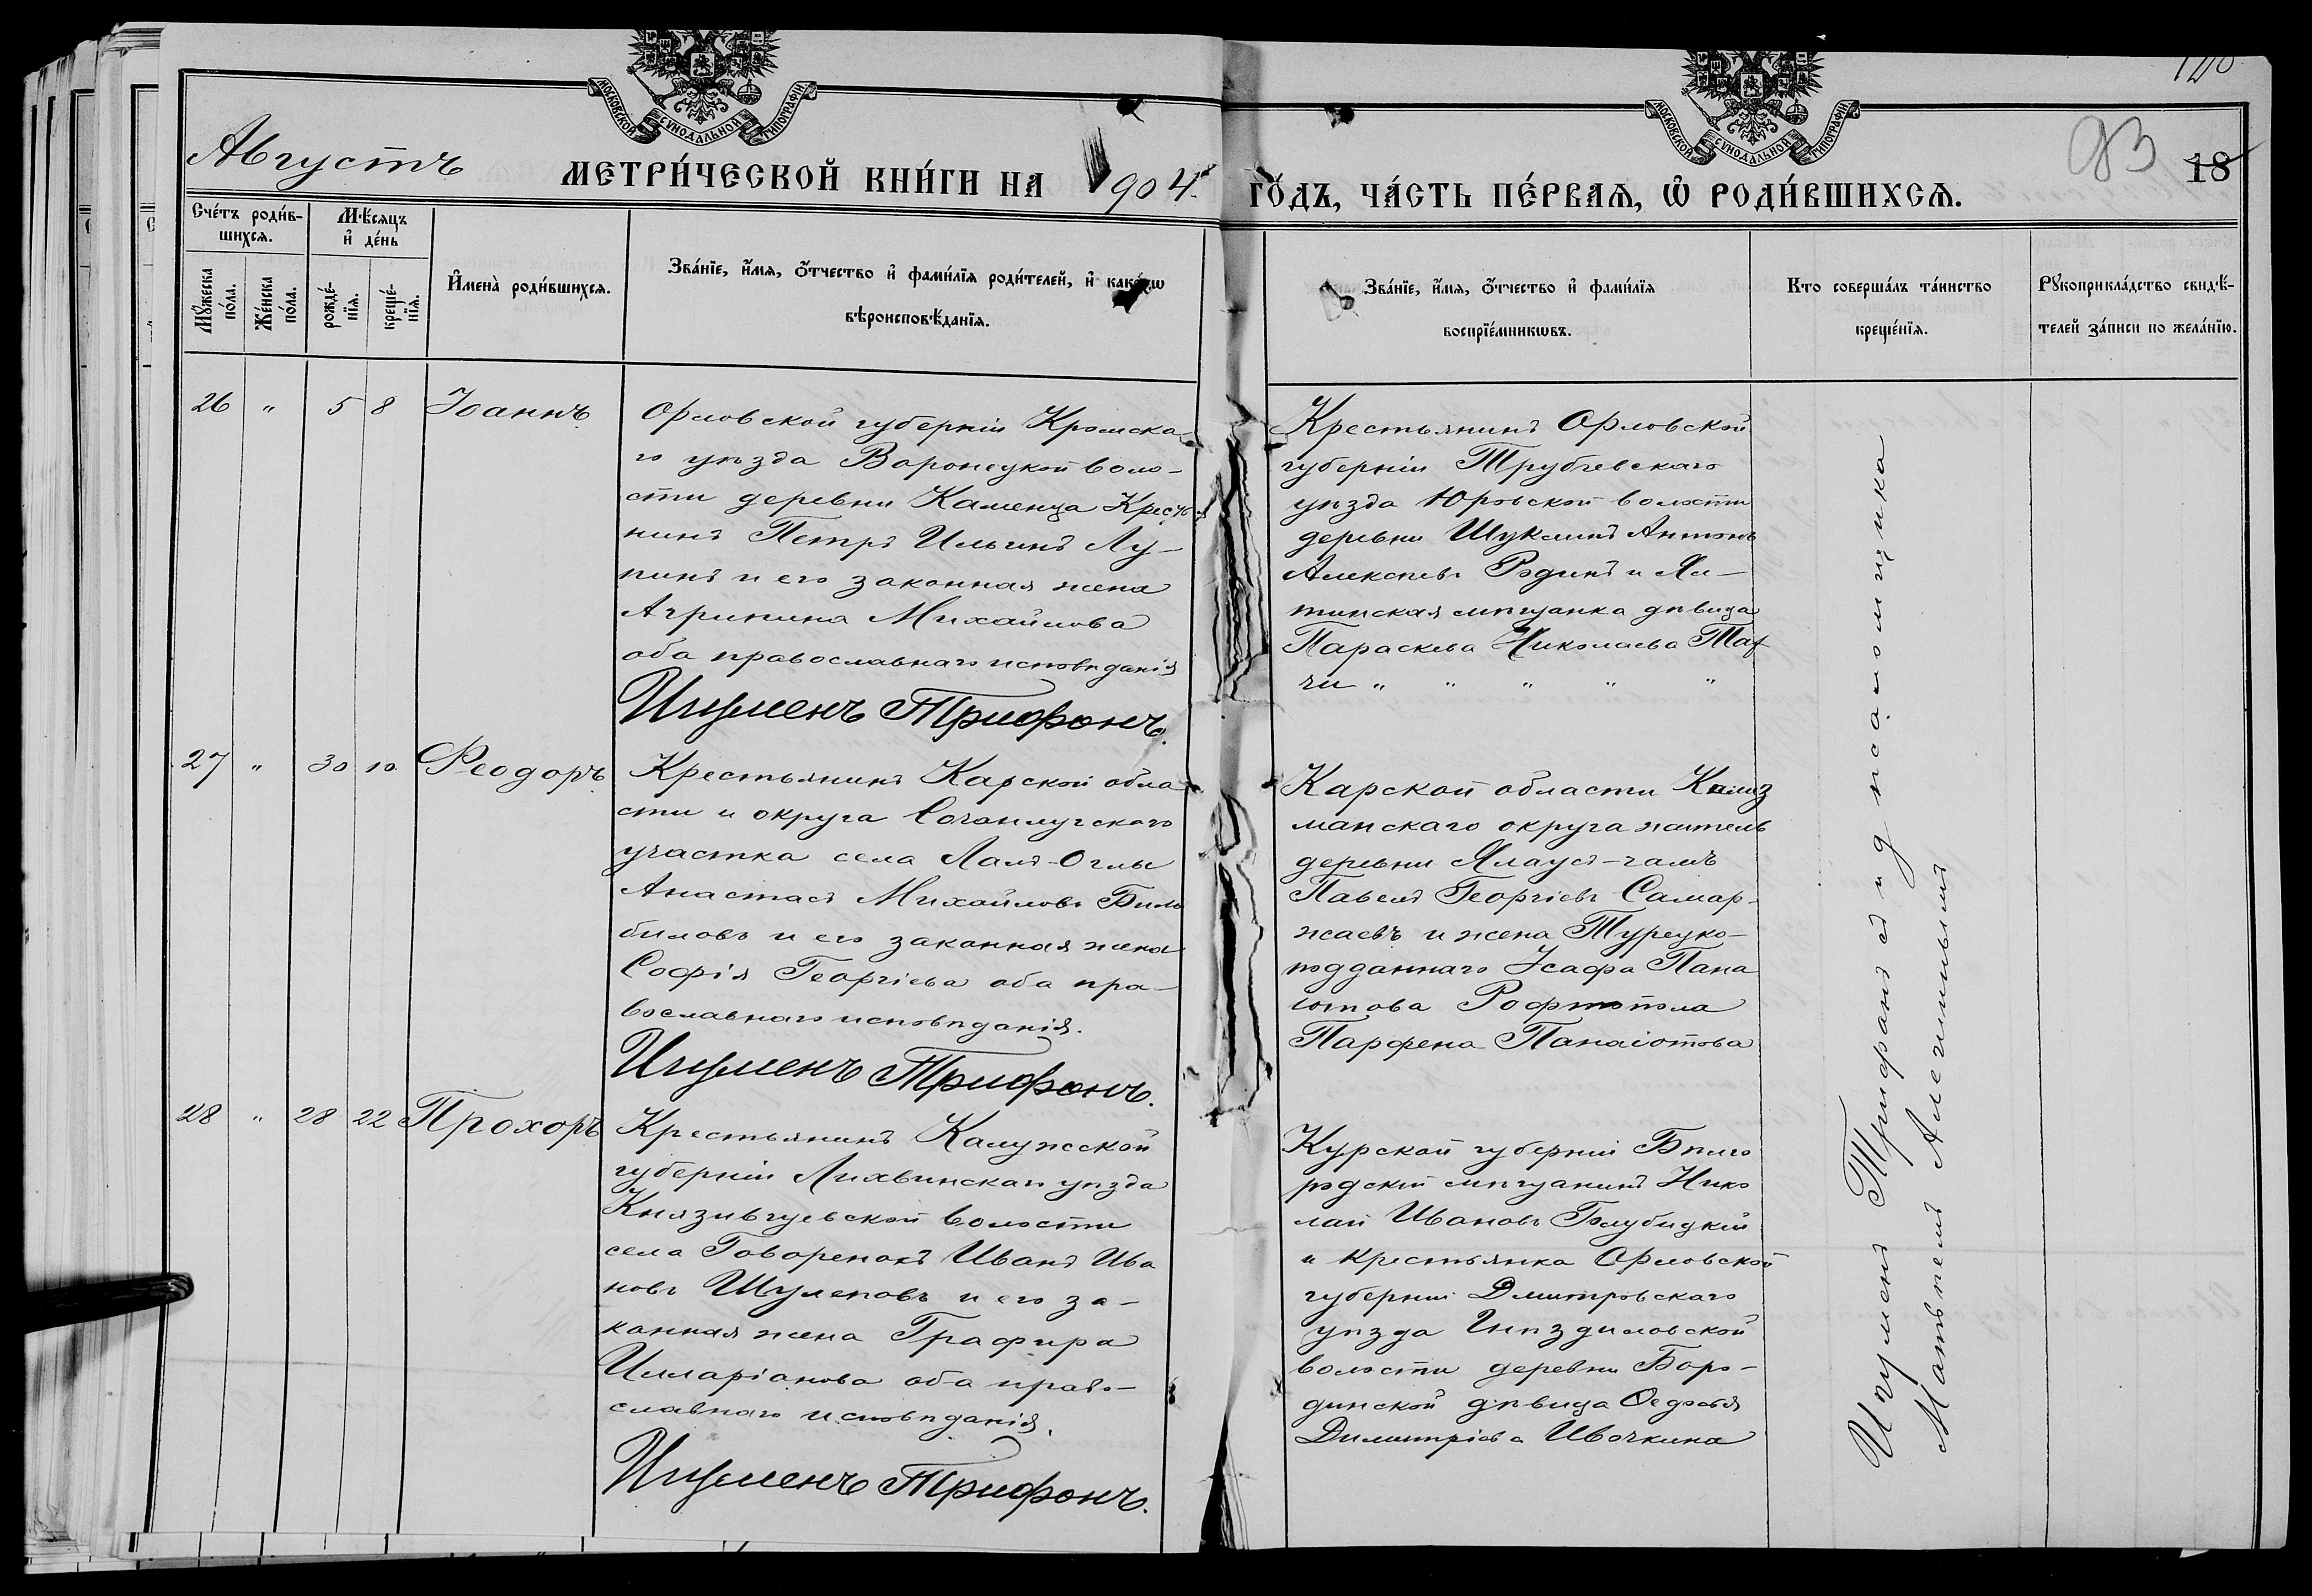 МОСКОВСКОЙ СѴНОДАЛЬНОЙ ТИПОГРАФІИ
МОСКОВСКОЙ СѴНОДАЛЬНОЙ ТИПОГРАФІИ
93
18
Августъ
МЕТРИ́ЧЕСКОЙ КНИ́ГИ НА 1904 г. ГО́ДЪ, ЧА́СТЬ ПЕ́РВАѦ, Ѡ҆ РОДИ́ВШИХСѦ.
Сче́тъ роди́в-
шихсѧ.
Мѣ́сѧцъ
и҆ де́нь
Мꙋ́жеска
по́ла.
Же́нска
по́ла.
рожде́-
нїѧ.
креще́-
нїѧ.
И҆мена̀ роди́вшихсѧ.
Зва́нїе, и҆́мѧ, о҆́тчество и҆ фами́лїѧ роди́телей, и҆ како́гѡ
вѣроисповѣ́данїѧ.
Зва́нїе, и҆́мѧ, о҆́тчество и҆ фами́лїѧ
воспрїе́мникѡвъ.
Кто соверша́лъ та́инство
креще́нїѧ.
Рꙋкоприкла́дство свидѣ́-
телей за́писи по жела́нїю.
26 " 5 8 Іоаннъ
Орловской губерніи Кромска-
го уѣзда Воронецкой воло-
сти деревни Каменца Крестья
нинъ Петръ Ильинъ Лу-
пинъ и его законная жена
Агрипина Михайлова
оба православнаго исповѣданія
Игуменъ Трифонъ.
Крестьянинъ Орловской
губерніи Трубчевскаго
уѣзда Юровской волости
деревни Шуклинъ Антонъ
Алексѣевъ Родинъ и Ял-
тинская мѣщанка дѣвица
Параскева Николаева Таф
чи " " " " "
27 " 30 10 Ѳеодоръ
Крестьянинъ Карской обла-
сти и округа Соганлугскаго
участка села Лалъ-Оглы
Анастасъ Михайловъ Били
биловъ и его законная жена
Софія Георгіева оба пра-
вославнаго исповѣданія.
Игуменъ Трифонъ.
Карской области Кагыз
манскаго округа житель
деревни Ялаусъ-чамъ
Павелъ Георгіевъ Самар-
жаевъ и жена Турецко-
подданнаго Исафа Пана
іотова
Парфена Панаіотова
28 " 28 22 Прохоръ
Крестьянинъ Калужской
губерніи Лихвинскаго уѣзда
Князищевской волости
села Говоренокъ Иванъ Ива
новъ Шулеповъ и его за-
конная жена Графира
Илларіонова оба право-
славнаго исповѣданія.
Игуменъ Трифонъ.
Курской губерніи Бѣлго
родскій мѣщанинъ Нико
лай Ивановъ Голубицкій
и крестьянка Орловской
губерніи Дмитровскаго
уѣзда Гнѣздиловской
волости деревни Боро-
динской дѣвица Ѳедосья
Димитріева Ивочкина
Игуменъ Трифонъ съ и д псаломщика
Матвѣемъ Алегинымъ